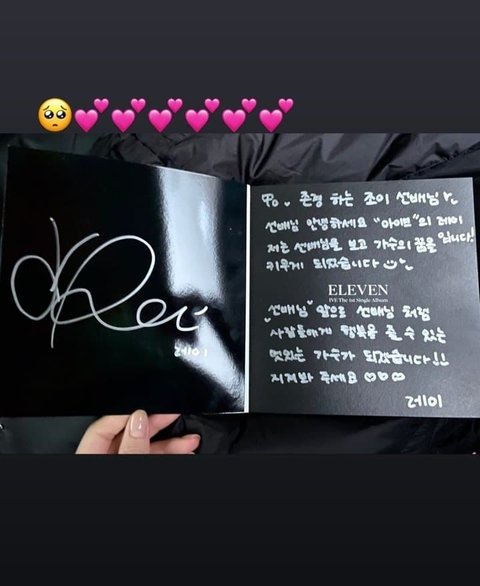 Rei
레이
To. 존경 하는 조이 선배님
선배님 안녕하세요 "아이브"의 레이 입니다!
저는 선배님을 보고 가수의 꿈을
키우게 되었습니다
ELEVEN
IVE The 1st Single Album
선배님 앞으로 선배님 처럼
사람들에게 행복을 줄 수 있는
멋있는 가수가 되겠습니다!!
지켜봐 주세요
레이